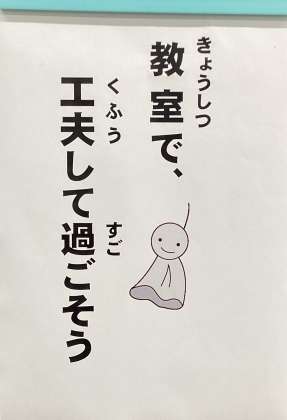 きょうしつ
教室で、
くふう すご
工夫して過ごそう